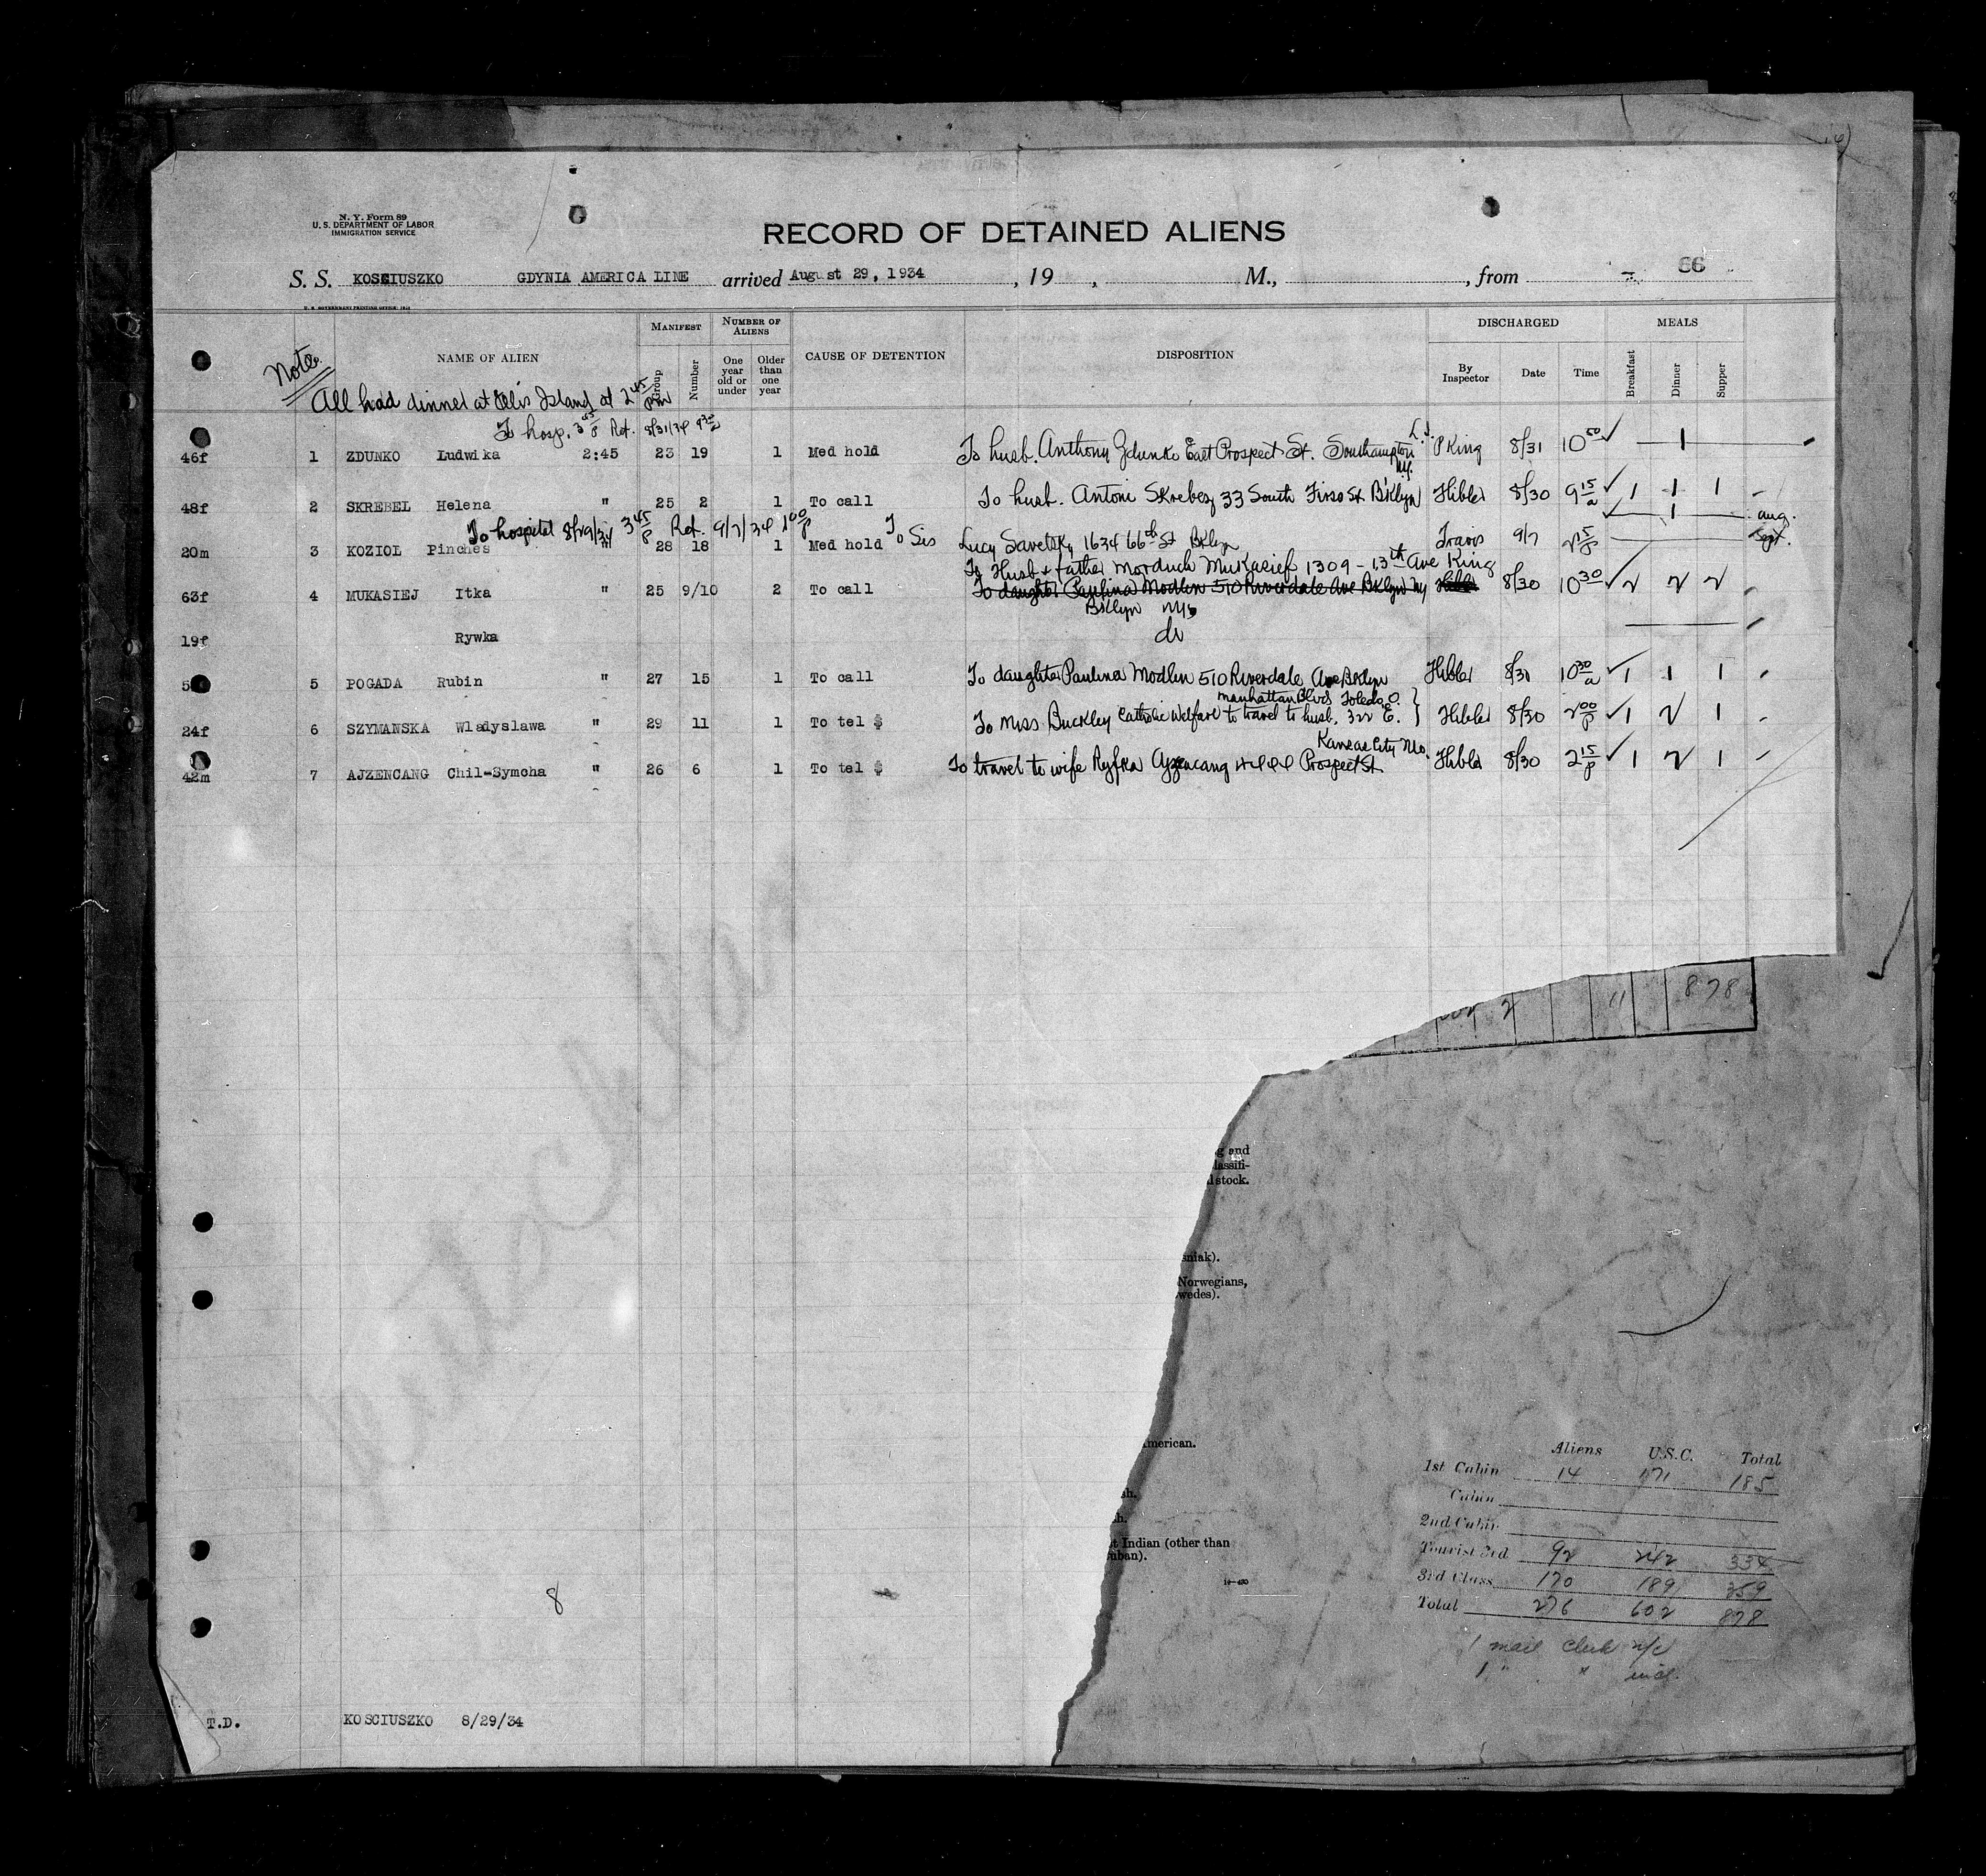 N. Y. Form 89
U. S. DEPARTMENT OF LABOR
IMMIGRATION SERVICE
RECORD OF DETAINED ALIENS
S. S. KOSCIUSZKO GDYNIA AMERICA LINE arrived August 29, 1934, 19 , M., , from 66
MANIFEST NUMBER OF ALIENS DISCHARGED MEALS
NAME OF ALIEN Group Number One year old or under Older than one year CAUSE OF DETENTION DISPOSITION By Inspector Date Time Breakfast Dinner Supper
Note
All had dinner at Ellis Island at 2 45 pm
To hosp. 3 45 P Ret. 8/31/34
46f 1 ZDUNKO Ludwika 2:45 23 19 1 Med hold To husb. Anthony Zdunko East Prospect St. Southampton L.I. N.Y. P King 8/31 10 50 1
48f 2 SKREBEL Helena " 25 2 1 To call To husb. Antoni Skrebez 33 South First St Bklyn Hibler 8/30 9 15 a 1 1 1
To hospital 8/29/34 3 45 P Ret. 9/7/34 1 00 P 1 aug.
20m 3 KOZIOL Pinches " 28 18 1 Med hold To Sis Lucy Savetsky 1634 66th St Bklyn Travis 9/7 2 15 P Sept.
To Husb & father Morduch Mukasief 1309 - 13th Ave King
63f 4 MUKASIEJ Itka " 25 9/10 2 To call To daughter Paulina Modlin 510 Riverdale Ave Bklyn Ny Hibler 8/30 10 30 2 2 2
Bklyn Ny
19f Rywka do
5 POGADA Rubin " 27 15 1 To call To daughter Paulina Modlin 510 Riverdale Ave Bklyn Hibler 8/30 10 30 a 1 1 1
Manhattan Blvd Toledo O.
24f 6 SZYMANSKA Wladyslawa " 29 11 1 To tel $ To Miss Buckley Catholic Welfare to travel to husb. 322 E. Hibler 8/30 2 00 P 1 2 1
Kansas City Mo.
42m 7 AJZENCANG Chil-Symcha " 26 6 1 To tel $ To travel to wife Ryfka Ajzencang Prospect St. Hibler 8/30 2 15 P 1 2 1
2 11 878
g and
lassifi-
d stock.
sniak).
Norwegians,
wedes).
merican.
sh.
h.
t Indian (other than
uban).
Aliens U.S.C. Total
1st Cabin 14 171 185
Cabin
2nd Cabin
Tourist 3rd 92 242 334
3rd Class 170 189 359
Total 276 602 878
1 mail clerk
1 " " incl.
8
T.D. KOSCIUSZKO 8/29/34